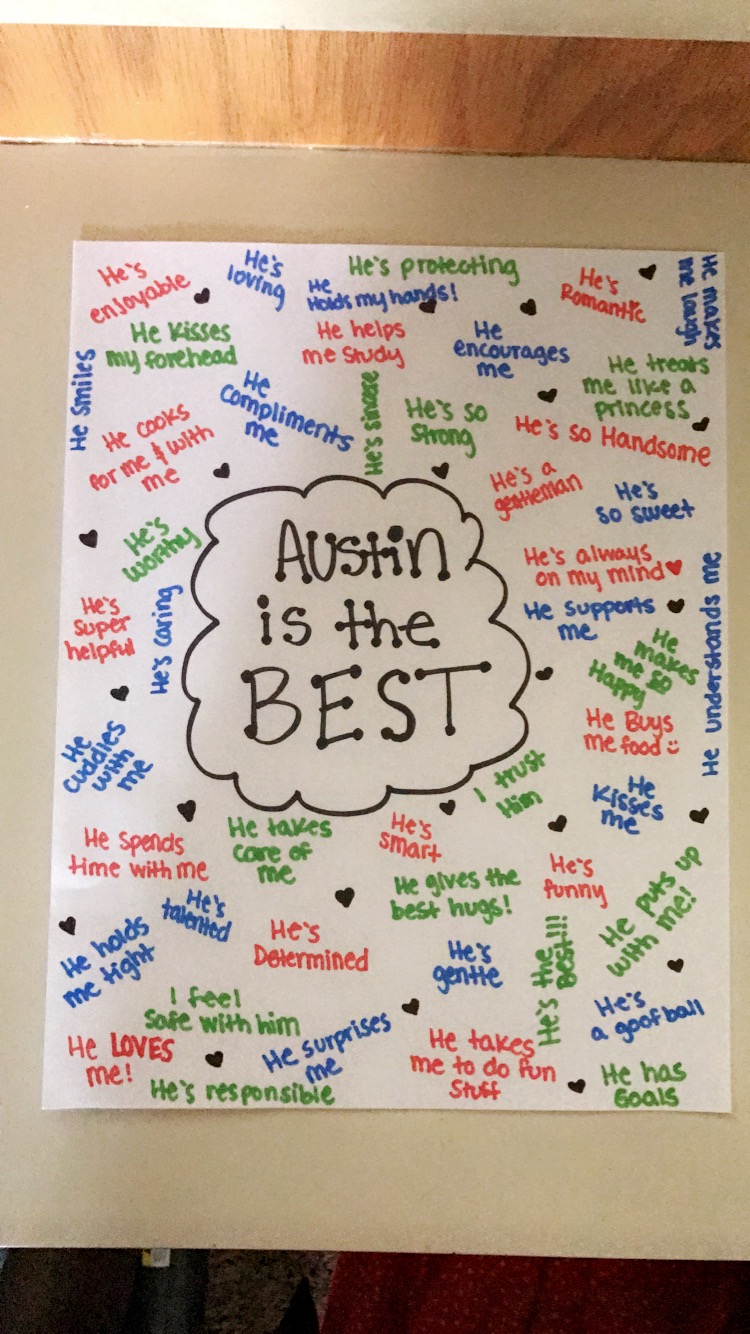 He's
enjoyable
He's
loving
He's protecting
He
Holds my hands!
He's
Romantic
He makes
me laugh
He Kisses
my forehead
He helps
me study
He
encourages
me
He treats
me like a
princess
He smiles
He
Compliments
me
He's
He's so
Strong
He's so Handsome
He cooks
for me & with
me
He's a
gentleman
He's
so sweet
He's
worthy
Austin
is the
BEST
He's always
on my mind
He understands me
He's
super
helpful
He's caring
He supports
me
He
makes
me so
Happy
He Buys
me food
He
cuddles
with
me
I trust
Him
He
Kisses
me
He spends
time with me
He takes
care of
me
He's
smart
He gives the
best hugs!
He's
funny
He puts up
with me!
He's
talented
He holds
me tight
He's
Determined
He's
gentle
He's the
Best!!!
I feel
Safe with him
He's
a goofball
He LOVES
me!
He surprises
me
He takes
me to do fun
Stuff
He has
Goals
He's responsible